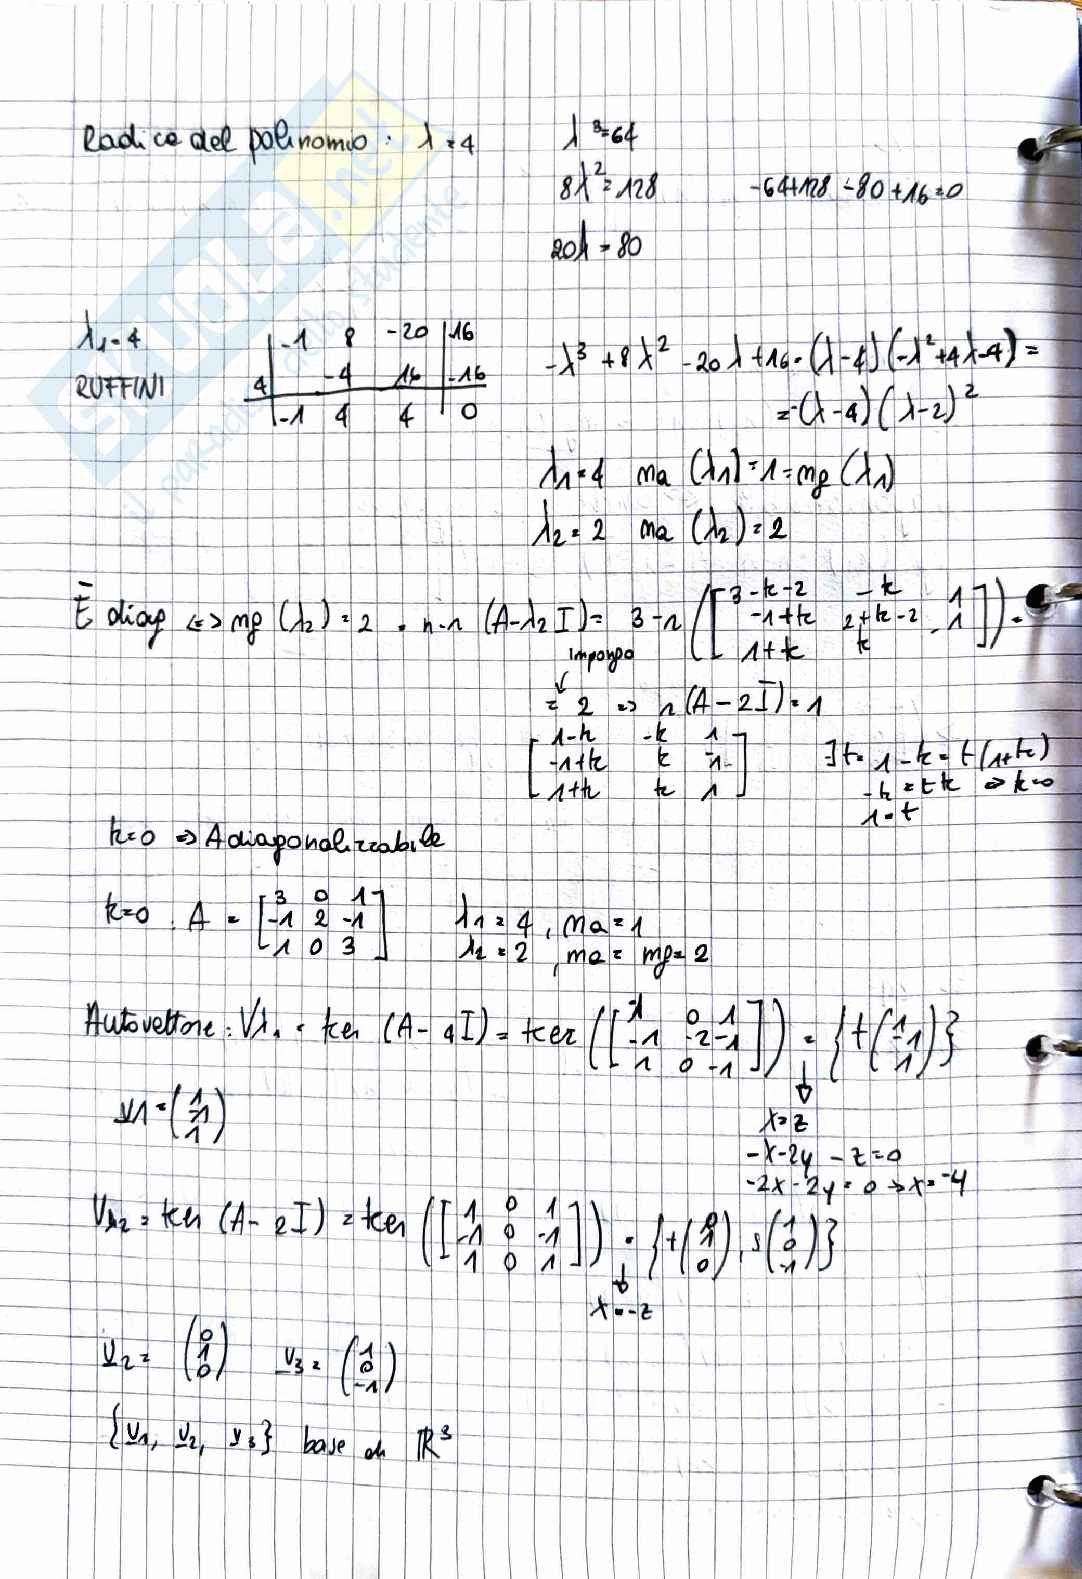 Radice del polinomio: λ=4
λ³=64
8λ²=128
-64+128-80+16=0
20λ=80
λ1=4
RUFFINI
-1 8 -20 | 16
4 | -4 16 | -16
-1 4 4 0
-λ³+8λ²-20λ+16=(λ-4)(-λ²+4λ-4)=
=-(λ-4)(λ-2)²
λ1=4 ma(λ1)=1=mg(λ1)
λ2=2 ma(λ2)=2
È diag <=> mg(λ2)=2=n-r(A-λ2I)=3-r([3-k-2 -k 1
-1+k 2+k-2 -1
1+k k 1])=
impongo
= 2 => r(A-2I)=1
[1-k -k 1
-1+k k -1
1+k k 1]
∃t= 1-k=t(1+k)
-k=tk => k=0
1=t
k=0 => A diagonalizzabile
k=0: A = [3 0 1
-1 2 -1
1 0 3]
λ1=4, ma=1
λ2=2, ma=mg=2
Autovettore: Vλ1=ker(A-4I)=ker([-1 0 1
-1 -2 -1
1 0 -1])={t(1
-1
1)}
v1=(1
-1
1)
x=z
-x-2y-z=0
-2x-2y=0 → x=-y
Vλ2=ker(A-2I)=ker([1 0 1
-1 0 -1
1 0 1])={t(0
1
0), s(1
0
-1)}
x=-z
v2=(0
1
0)
v3=(1
0
-1)
{v1, v2, v3} base di ℝ³
SKUOLA.net
il paradiso dello studente